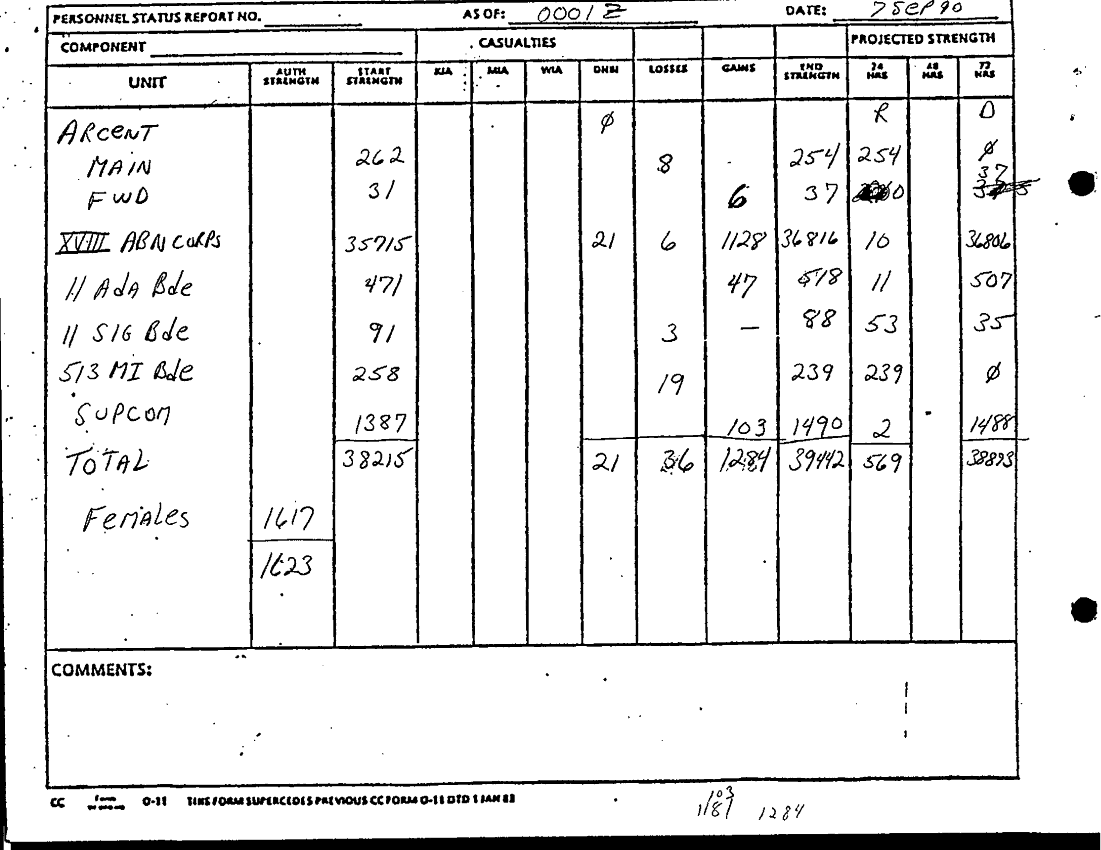 PERSONNEL STATUS REPORT NO. AS OF: 0001 Z DATE: 7 SEP 90
COMPONENT CASUALTIES PROJECTED STRENGTH
UNIT AUTH STRENGTH START STRENGTH KIA MIA WIA DNBI LOSSES GAINS END STRENGTH 24 HRS 48 HRS 72 HRS
ARCENT Ø R D
MAIN 262 8 254 254 Ø
FWD 31 6 37 0 37
XVIII ABN CORPS 35715 21 6 1128 36816 10 36806
11 AdA Bde 471 47 518 11 507
11 SIG Bde 91 3 — 88 53 35
513 MI Bde 258 19 239 239 Ø
SUPCOM 1387 103 1490 2 1488
TOTAL 38215 21 36 1284 39442 569 38893
Females 1617
1623
COMMENTS:
CC Form 0-11 THIS FORM SUPERCEDES PREVIOUS CC FORM 0-11 DTD 1 JAN 82
103
1181 1284